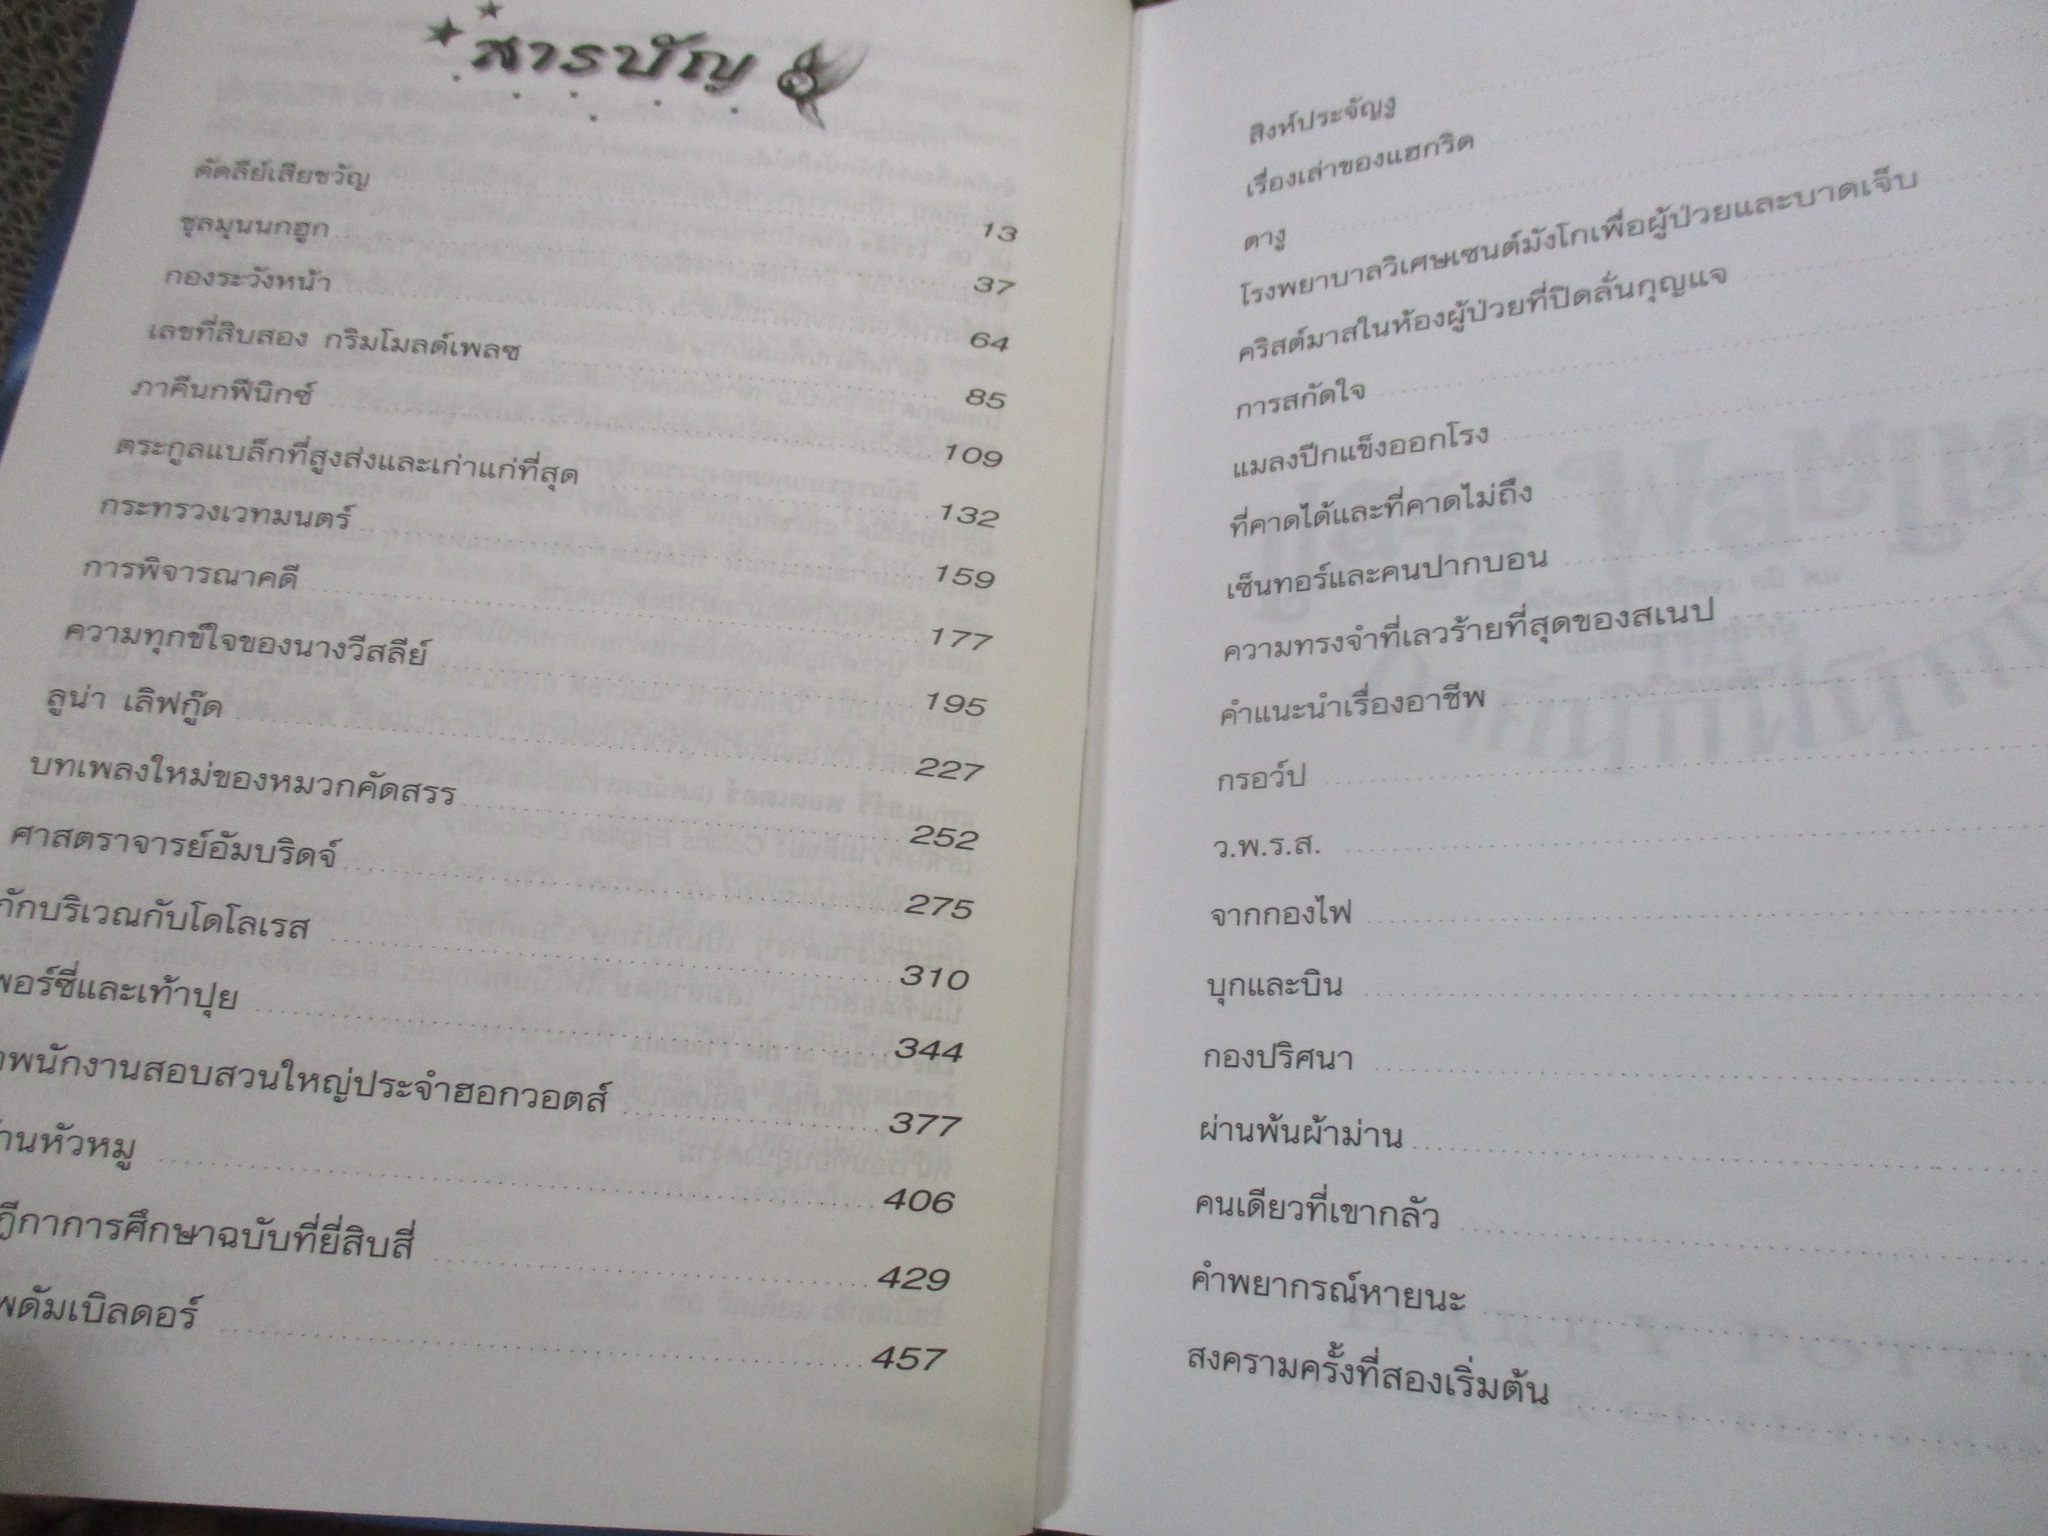 สารบัญ
ดัดลีย์เสียขวัญ 13
ชุลมุนนกฮูก 37
กองระวังหน้า 64
เลขที่สิบสอง กริมโมลด์เพลซ 85
ภาคีนกฟีนิกซ์ 109
ตระกูลแบล็กที่สูงส่งและเก่าแก่ที่สุด 132
กระทรวงเวทมนตร์ 159
การพิจารณาคดี 177
ความทุกข์ใจของนางวีสลีย์ 195
ลูน่า เลิฟกู๊ด 227
บทเพลงใหม่ของหมวกคัดสรร 252
ศาสตราจารย์อัมบริดจ์ 275
กักบริเวณกับโดโลเรส 310
พอร์ซี่และเท้าปุย 344
พนักงานสอบสวนใหญ่ประจำฮอกวอตส์ 377
านหัวหมู 406
ฎีกาการศึกษาฉบับที่ยี่สิบสี่ 429
พดัมเบิลดอร์ 457
สิงห์ประจัญงู
เรื่องเล่าของแฮกริด
ตางู
โรงพยาบาลวิเศษเซนต์มังโกเพื่อผู้ป่วยและบาดเจ็บ
คริสต์มาสในห้องผู้ป่วยที่ปิดลั่นกุญแจ
การสกัดใจ
แมลงปีกแข็งออกโรง
ที่คาดได้และที่คาดไม่ถึง
เซ็นทอร์และคนปากบอน
ความทรงจำที่เลวร้ายที่สุดของสเนป
คำแนะนำเรื่องอาชีพ
กรอว์ป
ว.พ.ร.ส.
จากกองไฟ
บุกและบิน
กองปริศนา
ผ่านพ้นผ้าม่าน
คนเดียวที่เขากลัว
คำพยากรณ์หายนะ
สงครามครั้งที่สองเริ่มต้น